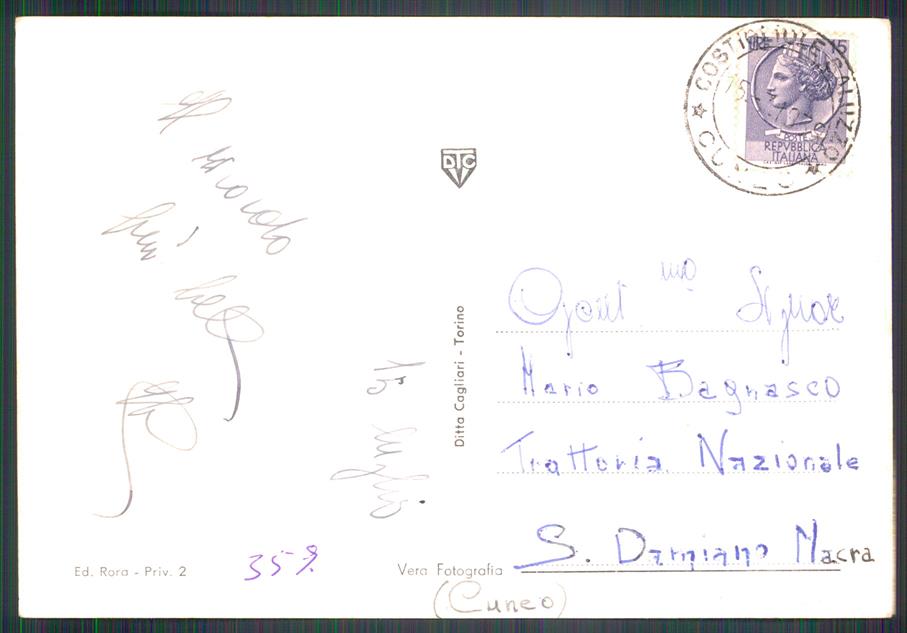 Il ricordo
più bello
15 luglio
DTC
Ditta Cagliari - Torino
Ed. Rora - Priv. 2
Vera Fotografia
35 g.
LIRE 15
POSTE
REPVBBLICA
ITALIANA
COSTIGLIOLE SALUZZO
CUNEO
Gent mo Signor
Mario Bagnasco
Trattoria Nazionale
S. Damiano Macra
(Cuneo)